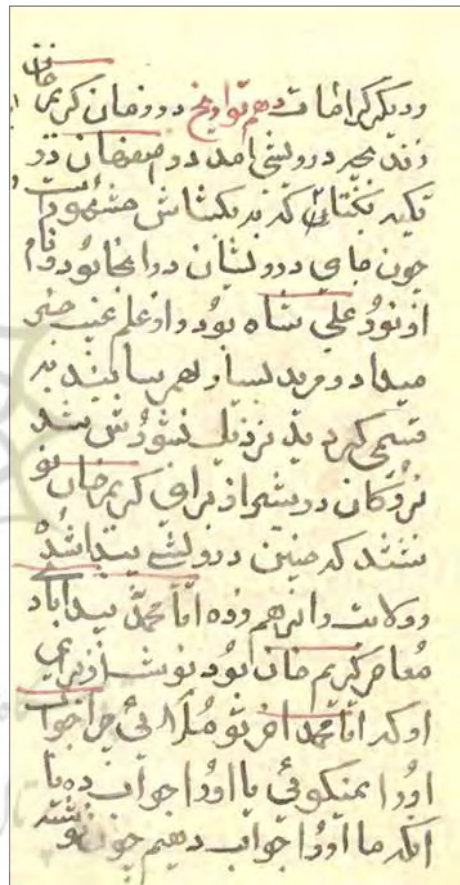 و دیگر کرامات دهم تواریخ در زمان کریم خان
زند بحیر درویشی امد در اصفهان در
تکیه بکتاش که به بکتاش مشهور است
چون جای درویشان در انجا بود و نام
او نور علی شاه بود و از علم غیب خبر
میداد و مرید بسیار بهم رسانید به
قسمی که نزدیک شورش شد
بزرگان در شیراز برای کریم خان نو
شتند که چنین درویشی پیدا شده
و ولایت را بر هم زده اقا محمد بیداباد
معاصر کریم خان بود نوشت از برای
او که اقا محمد اخر تو ملائی چرا جواب
او را نمیگوئی یا او را جواب ده یا
انکه ما او را جواب دهیم چون نوشته